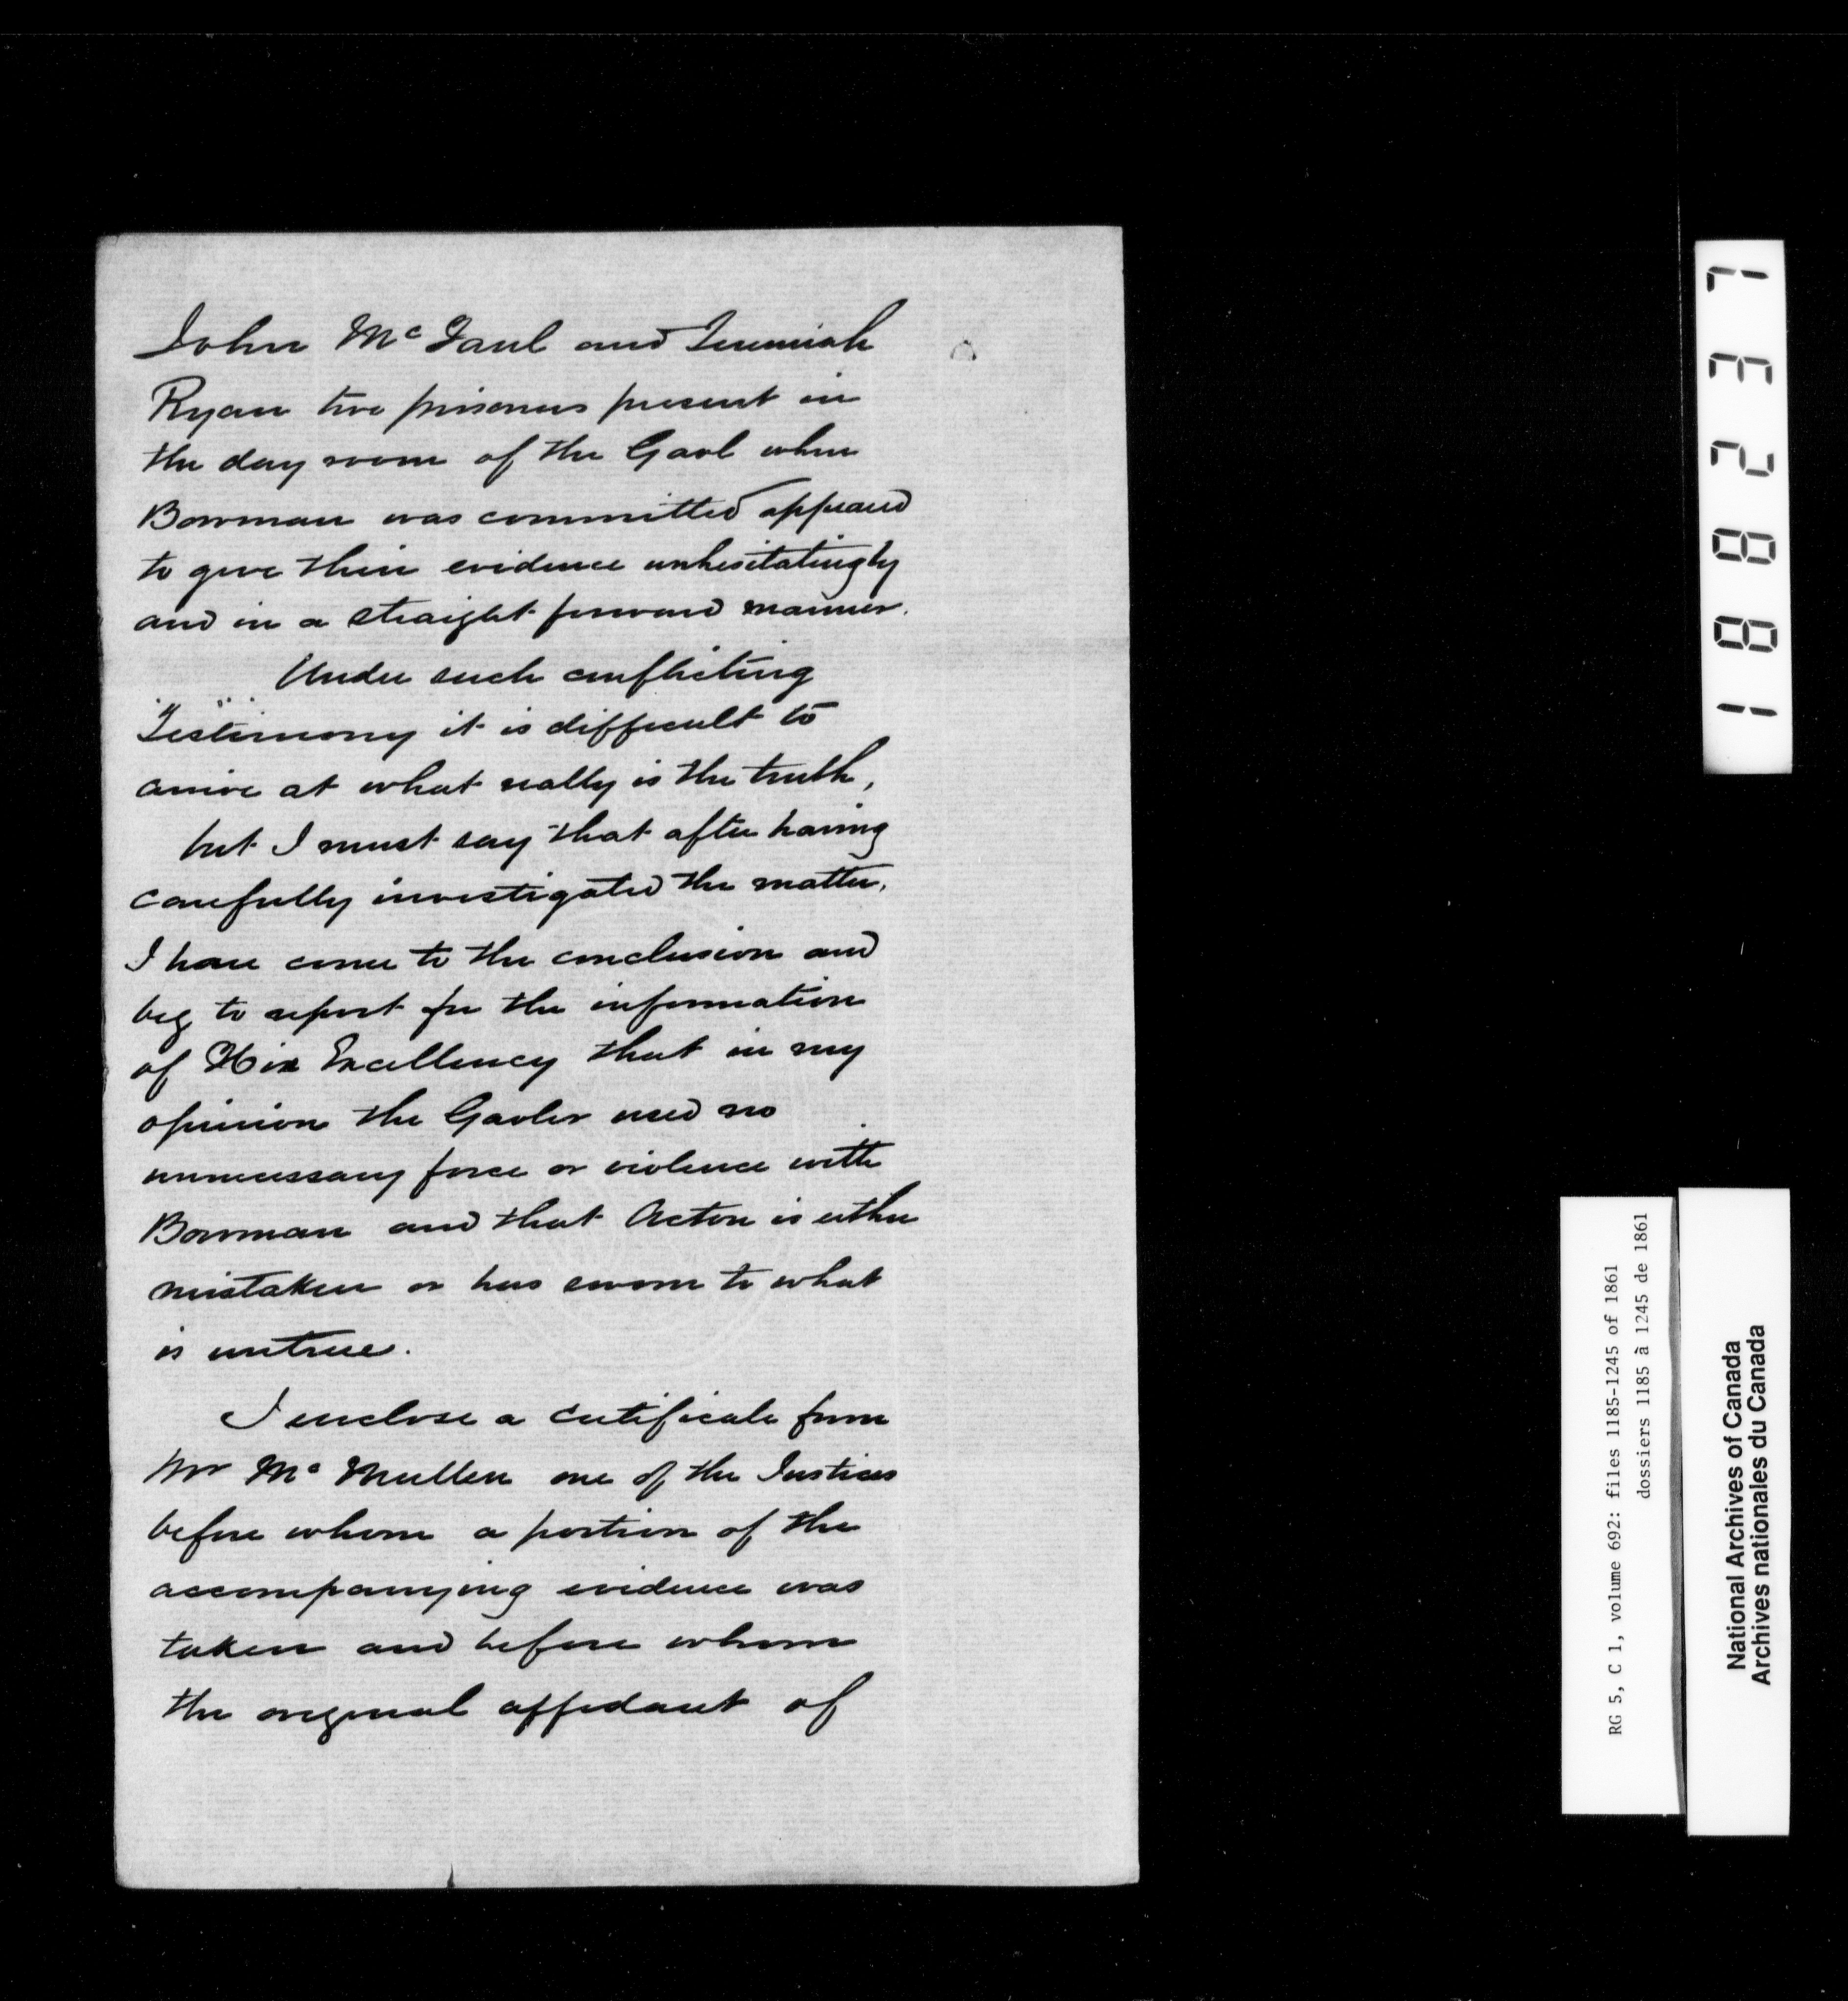 John Mc Faul and Jeremiah
Ryan two prisoners present in
the day room of the Gaol when
Bowman was committed appeared
to give their evidence unhesitatingly
and in a straight forward manner.
Under such conflicting
Testimony it is difficult to
arrive at what really is the truth,
but I must say that after having
carefully investigated the matter,
I have come to the conclusion and
beg to report for the information
of His Excellency that in my
opinion the Gaoler used no
unnecessary force or violence with
Bowman and that Acton is either
mistaken or has sworn to what
is untrue.
I enclose a certificate from
Mr Mc Mullen one of the Justices
before whom a portion of the
accompanying evidence was
taken and before whom
the original affidavit of
188237
RG 5, C 1, volume 692: files 1185-1245 of 1861
dossiers 1185 à 1245 de 1861
National Archives of Canada
Archives nationales du Canada